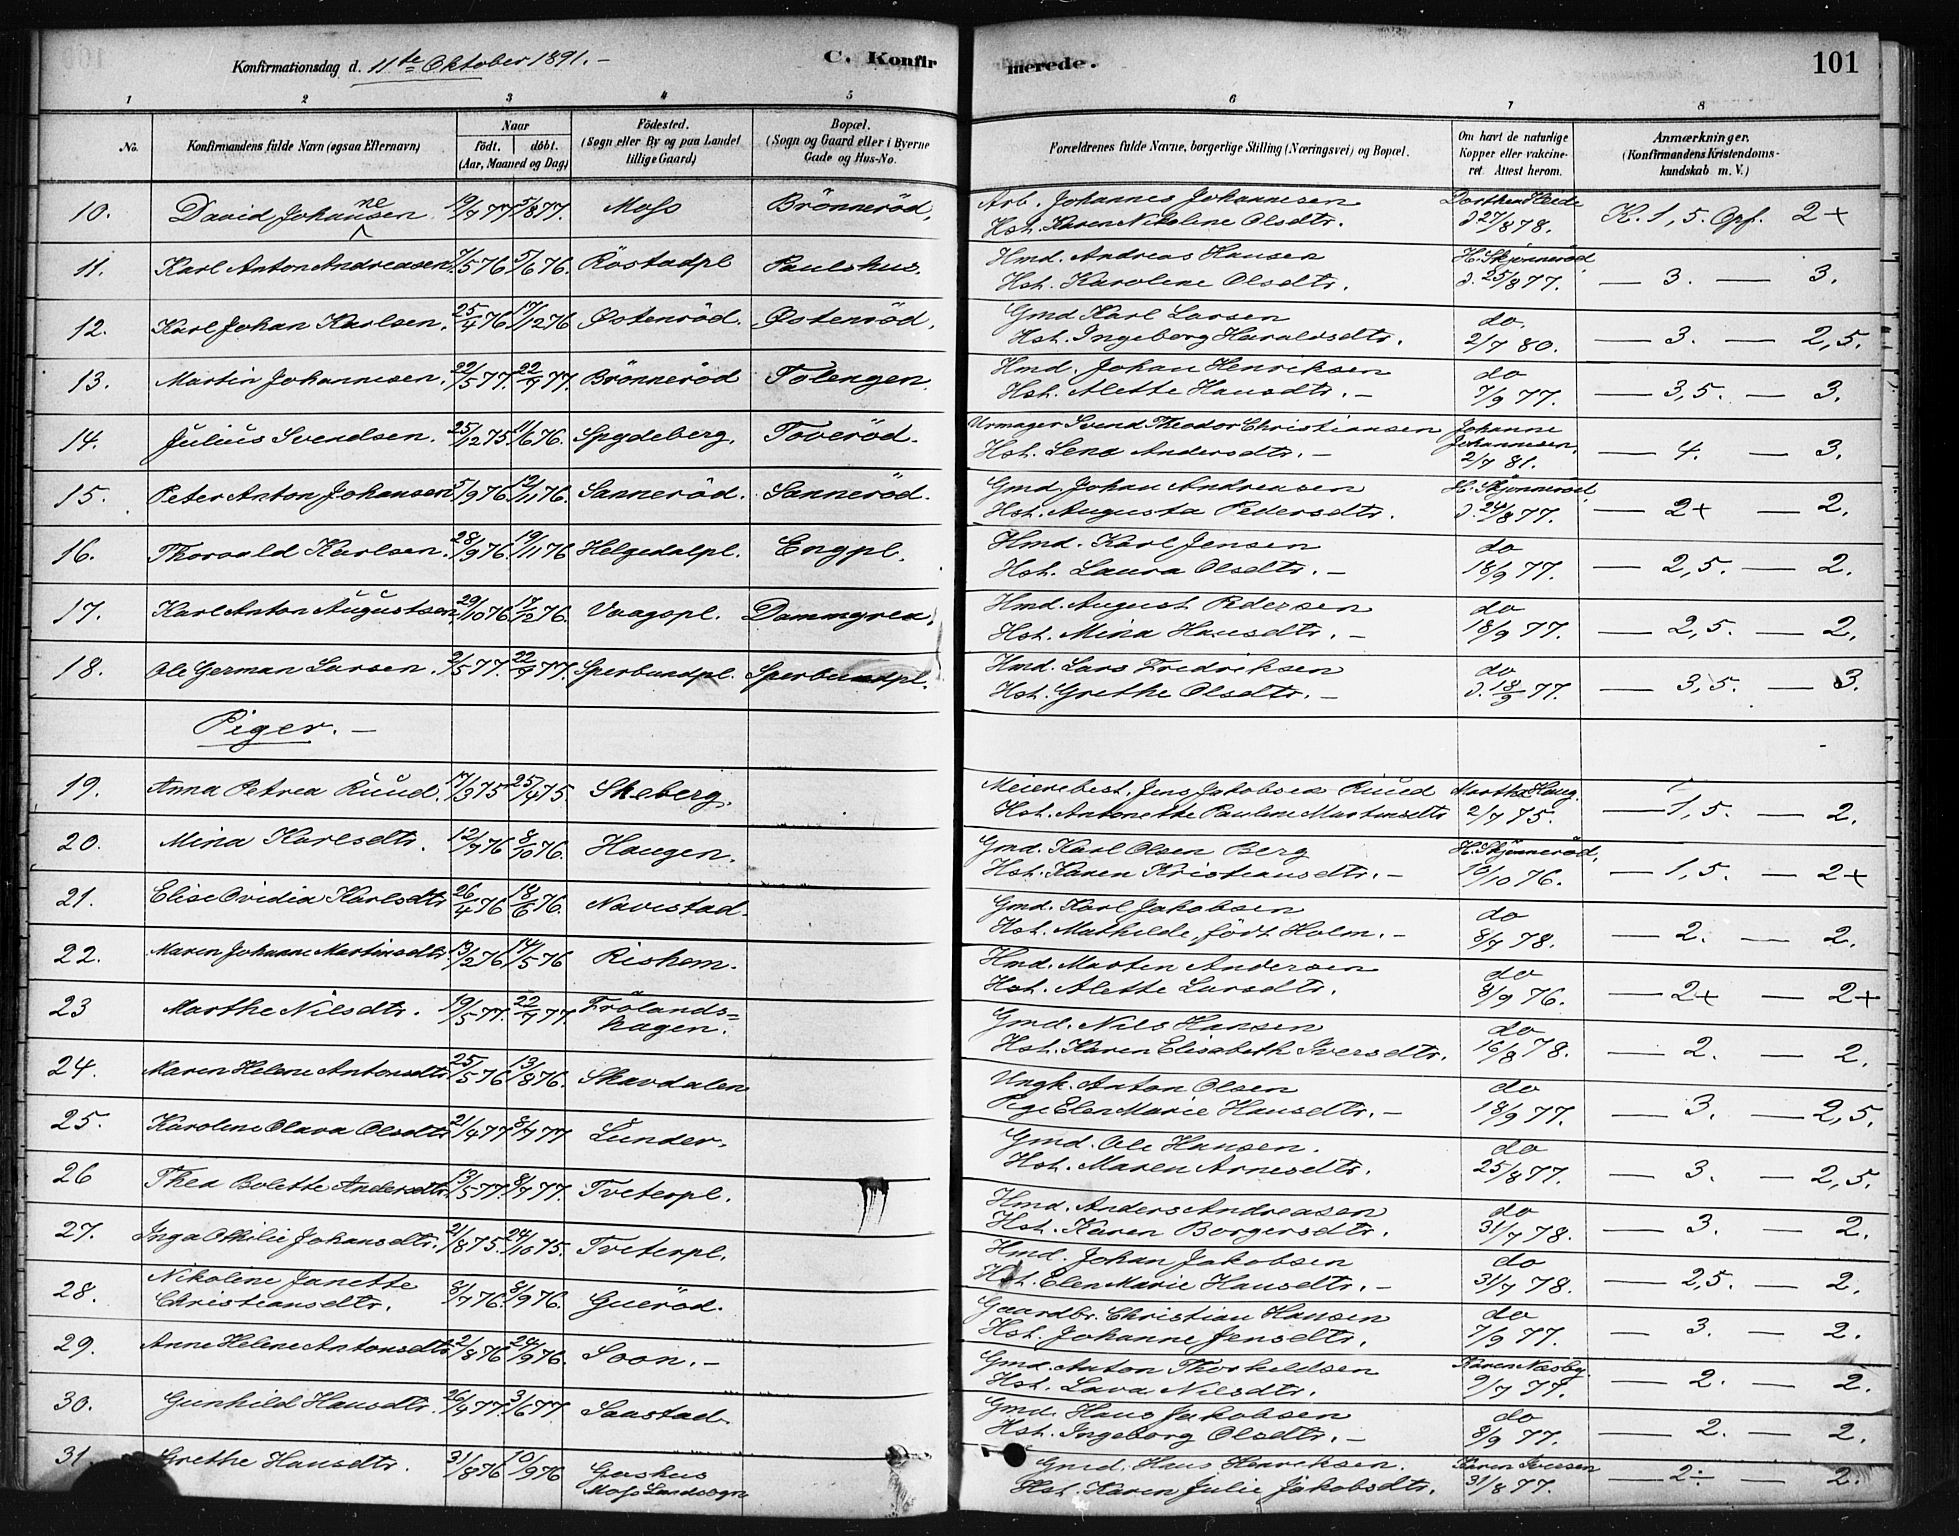 Konfirmationsdag d. 11te Oktober 1891.- C. Konfirmerede. 101
1 2 3 4 5 6 7 8
No. Konfirmandens fulde Navn (ogsaa Efternavn) Naar födt. döbt. (Aar, Maaned og Dag) Födested. (Sogn eller By og paa Landet tillige Gaard) Bopæl. (Sogn og Gaard eller i Byerne Gade og Hus-No. Forældrenes fulde Navne, borgerlige Stilling (Næringsvei) og Bopæl. Om havt de naturlige Kopper eller vakcineret. Attest herom. Anmærkninger. (Konfirmandens Kristendomskundskab m. V.)
10. David Johannesen 19/7 77 5/8 77. Moss Brönneröd. Arb. Johannes Johannesen Dorthea Heide K. 1,5. Opf. 2+
Hst. Karen Nikoline Olsdtr. d 27/8 78.
11. Karl Anton Andreasen 7/5 76 5/6 76. Röstadpl Paulshus. Hmd. Andreas Hansen H. Skjönneröd — 3. — 3.
Hst. Karoline Olsdtr. d. 25/8 77.
12. Karl Johan Karlsen. 25/4 76 17/12 76 Östenröd. Östenröd. Gmd Karl Larsen do. — 3. — 2,5.
Hst. Ingeborg Haraldsdtr. 2/7 80.
13. Martin Johannesen. 22/5 77. 22/7 77. Brönneröd Tolengen. Hmd. Johan Henriksen do — 3,5. — 3.
Hst. Alette Hansdtr. - 7/9 77.
14. Julius Svendsen. 25/12 75. 11/6 76. Spydeberg. Toveröd. Urmager Svend Theodor Christiansen Johanne Johannesen. — 4. — 3.
Hst. Lena Andersdtr. - 2/7 81.
15. Peter Anton Johansen 5/9 76 12/11 76. Sanneröd. Sanneröd. Gmd. Johan Andreasen H. Skjönneröd — 2+ — 2.
Hst. Augusta Pedersdtr. d. 24/8 77.
16. Thorvald Karlsen. 28/9 76. 19/11 76 Helgedalpl. Engpl. Hmd. Karl Jensen do — 2,5. — 2.
Hst. Laura Olsdtr. - 18/9 77.
17. Karl Anton Augustsen 29/10 76 17/12 76. Vaagspl. Dammyrea. Hmd. August Pedersen do — 2,5. — 2.
Hst. Mina Hansdtr. - 18/9 77.
18. Ole German Larsen. 2/5 77. 22/7 77. Sperbundpl. Sperbundpl. Hmd. Lars Fredriksen do — 3,5. — 3.
Hst. Grethe Olsdtr. - d. 18/9 77.
Piger. -
19. Anna Petrea Ruud. 17/3 75 25/4 75. Skeberg. Meieribest. Jens Jakobsen Ruud Marthe Haug. — 1,5. — 2.
Hst. Antonette Pauline Martinsdtr 2/7 75.
20. Mina Karlsdtr. 12/7 76 8/10 76. Haugen. Gmd. Karl Olsen Berg H. Skjönneröd. — 1,5. — 2+
Hst. Karen Kristiansdtr. - 16/10 76.
21. Elise Ovidia Karlsdtr 26/4 76 18/6 76. Navestad. Gmd. Karl Jakobsen do — 2. — 2.
Hst. Mathilde, födt Holm. - 8/7 78.
22. Maren Johanne Martinsdtr. 13/2 76 14/5 76 Rishem. Hmd. Marten Andersen do — 2+ — 2+
Hst. Alette Larsdtr. 8/9 76.
23 Marthe Nilsdtr. 19/5 77. 22/7 77. Frölandshagen. Gmd. Nils Hansen do — 2. — 2.
Hst. Karen Elisabeth Iversdtr. 16/8 78.
24. Maren Helene Antonsdtr 25/5 76 13/8 76. Skavdalen Ungk. Anton Olsen do — 3. — 2,5.
Pge Elen Marie Hansdtr. - 18/9 77.
25. Karoline Olava Olsdtr 21/4 77 8/7 77 Lunder. Gmd. Ole Hansen. do — 3. — 2,5.
Hst. Maren Arnesdtr. 25/8 77.
26 Thea Bolette Andersdtr 13/5 77. 8/7 77. Tveterpl. Hmd. Anders Andreasen do — 3. — 2.
Hst. Karen Borgersdtr. 31/7 78.
27. Inga Othilie Johansdtr. 21/8 75. 24/10 75. Tveterpl. Hmd. Johan Jakobsen do — 2,5. — 2.
Hst. Elen Marie Hansdtr. - 31/7 78.
28. Nikoline Janette Christiansdtr. 8/7 76. 8/9 76. Gueröd. Gaardbr. Christian Hansen do — 3. — 2.
Hst. Johanne Jensdtr. 7/9 77.
29. Anne Helene Antonsdtr 2/8 76 24/9 76. Soon. - Gmd. Anton Thorkildsen Karen Næsby. — 2. — 2.
Hst. Lava Nilsdtr. 9/7 77.
30. Gunhild Hansdtr. 26/4 77. 3/6 77 Saastad. Gmd. Hans Jakobsen do — 2. — 2.
Hst. Ingeborg Olsdtr. - 8/9 77.
31. Grethe Hansdtr. 31/8 76 10/9 76 Gashus Moss Landsogn Gmd. Hans Henriksen. Karen Iversen — 2÷ — 2.
Hst. Karen Julie Jakobsdtr. 31/8 77.